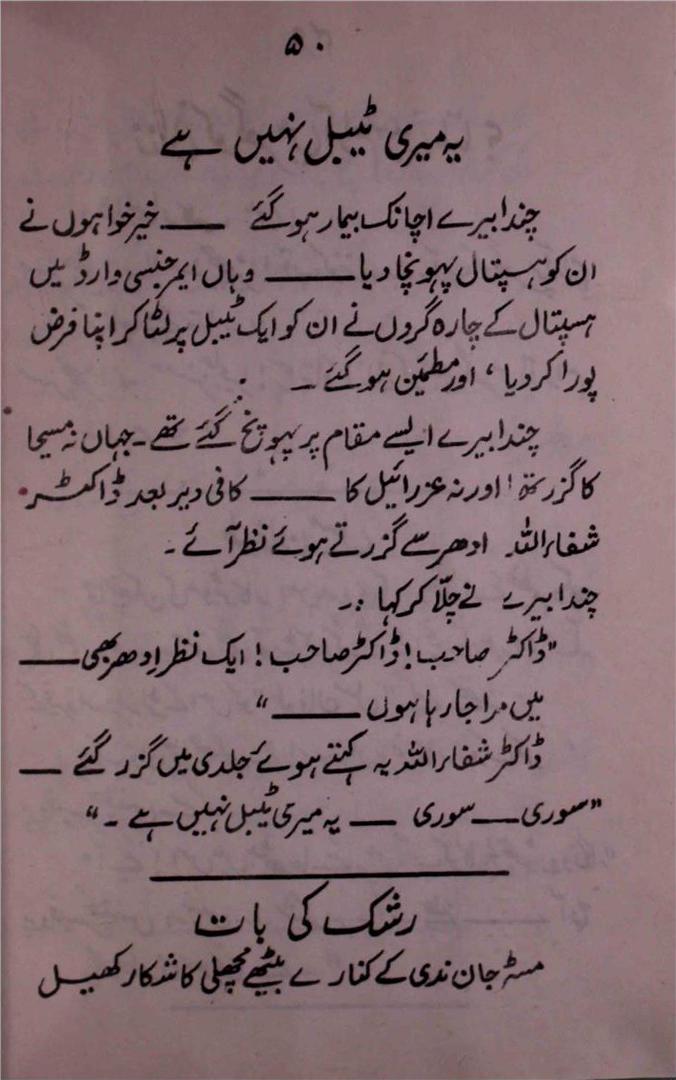 ۵۰
یہ میری ٹیبل نہیں ہے
چندا بیرے اچانک بیمار ہو گئے ــــ خیر خواہوں نے
ان کو ہسپتال پہونچا دیا ــــ وہاں ایمرجنسی وارڈ میں
ہسپتال کے چارہ گروں نے ان کو ایک ٹیبل پر لٹا کر اپنا فرض
پورا کر دیا ، اور مطمئن ہو گئے ۔
چندا بیرے ایسے مقام پر پہونچ گئے تھے ۔ جہاں نہ مسیحا
کا گزر تھا اور نہ عزرائیل کا ــــ کافی دیر بعد ڈاکٹر
شفاء اللہ ادھر سے گزرتے ہوئے نظر آئے ۔
چندا بیرے نے چلّا کر کہا :۔
"ڈاکٹر صاحب ! ڈاکٹر صاحب ! ایک نظر اِدھر بھی ــــ
میں مرا جا رہا ہوں ــــ"
ڈاکٹر شفاء اللہ یہ کہتے ہوئے جلدی میں گزر گئے ــــ
"سوری ــــ سوری ــــ یہ میری ٹیبل نہیں ہے ۔"
رشک کی بات
مسٹر جان ندی کے کنارے بیٹھے مچھلی کا شکار کھیل